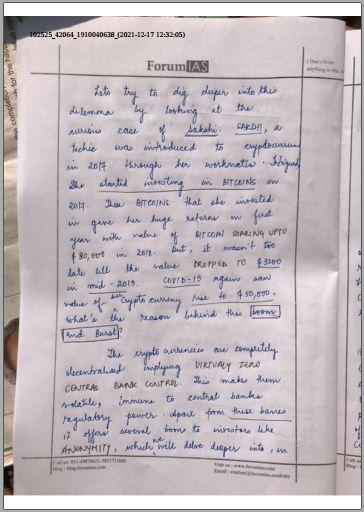 102525_42064_1910040638_(2021-12-17 12:32:05)
Forum IAS
Don't Write
anything in this
Lets try to dig deeper into this
dilemma by looking at the
curious case of Sakshi. SAKSHI, a
techie was introduced to cryptocurrency
in 2017 through her workmates. Intrigued,
She started investing in BITCOINS in
2017. These BITCOINS that she invested
in gave her huge returns in first
year with value of BITCOIN SOARING UPTO
$30,000 in 2018. But, it wasn't too
late till the value DROPPED TO $3200
in mid-2019. COVID-19 again saw
value of Crypto currency rise to $50,000.
what's the reason behind this boom
and Burst?
The crypto currencies are completely
decentralised implying VIRTUALY ZERO
CENTRAL BANK CONTROL. This makes them
volatile, immune to central banks
regulatory power. Apart from these banes
it offers several boons to investors like
ANONYMITY, which we'll delve deeper into, in
Call us: 911-49878625, 9821711605
blog.forumias.com
Visit us: www.forumias.com
Email: student@forumias.academy